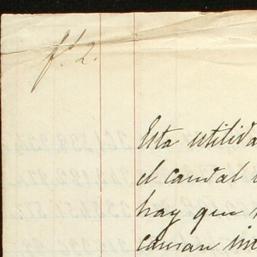 fº 2.
Esta utilida
el caudal
hay que
causan in